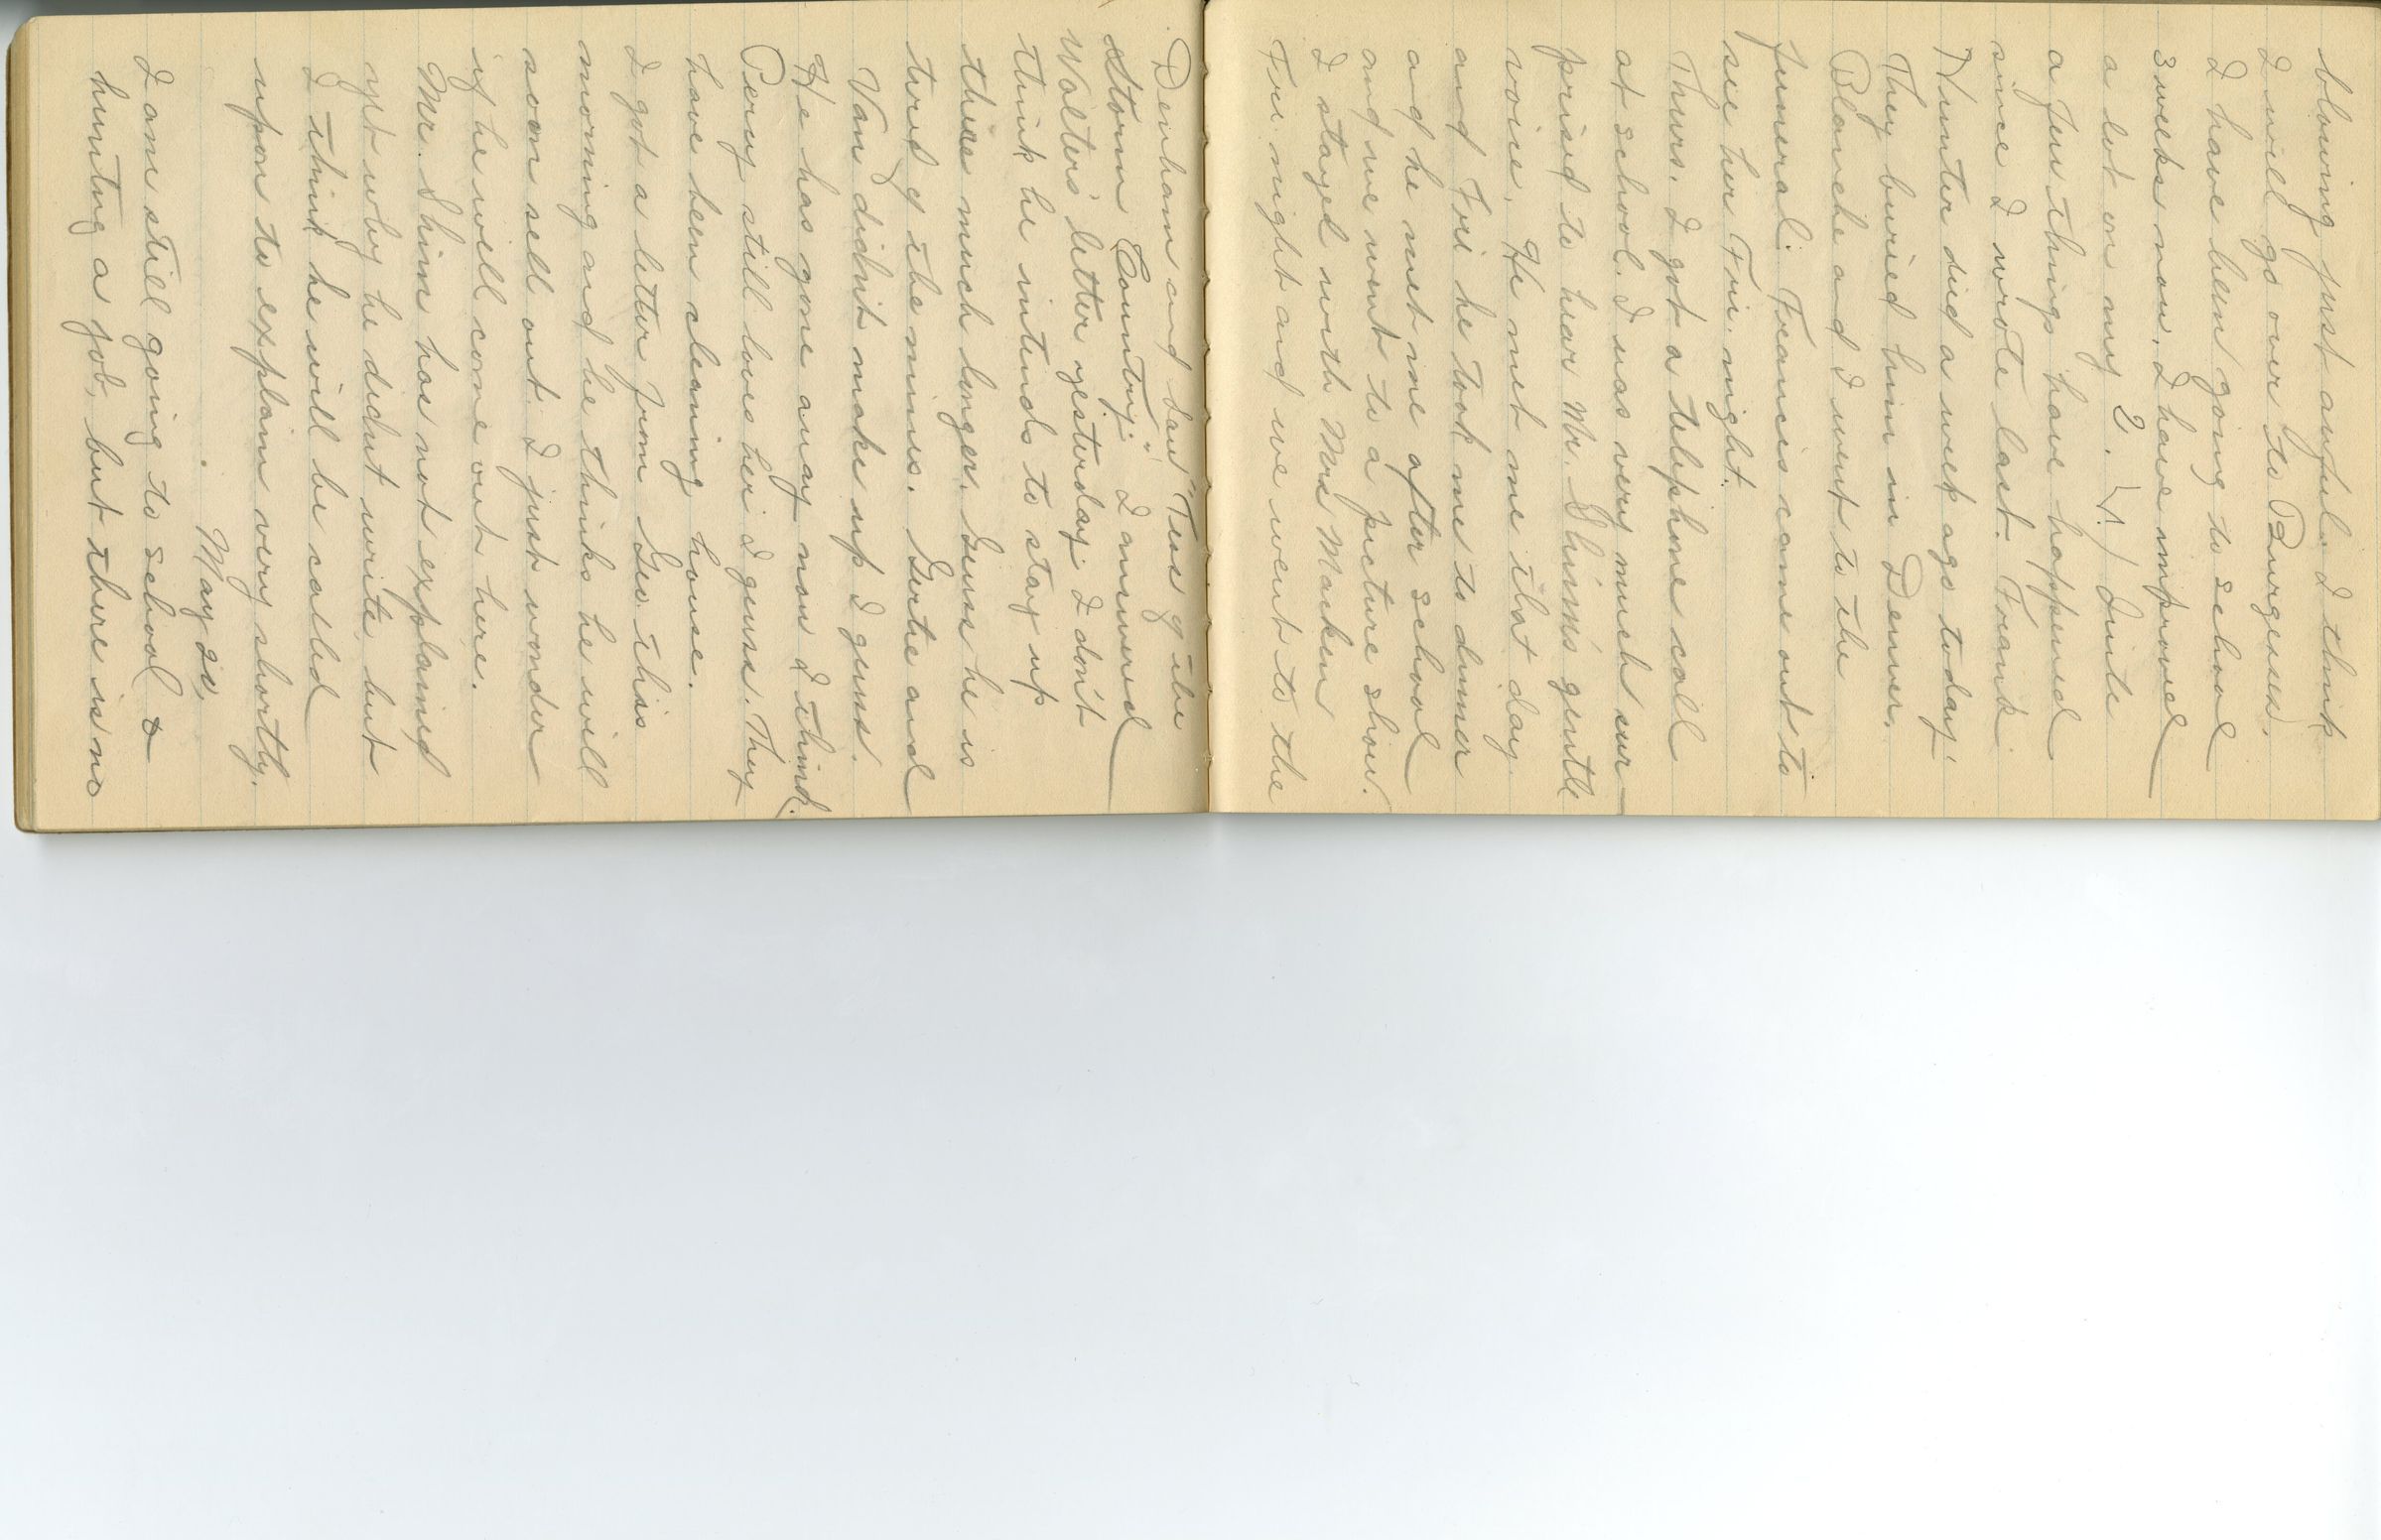 blowing just awful. I think
I will go over to Burgesses.
I have been going to school
3 weeks now, I have improved
a lot on my 2. V. / Quite
a few things have happened
since I wrote last. Frank
Hunter died a week ago today.
They buried him in Denver.
Blanche and I went to the
funeral. Francis came out to
see her Fri. night.
Thurs. I got a telephone call
at school. I was very much sur-
prised to hear Mr. Shinn's gentle
voice. He met me that day
and Fri he took me to dinner
and he met me after school
and we went to a picture show.
I stayed with Mrs Macken
Fri. night and we went to the
Denham and saw "Tess of the
Storm Country." I answered
Walters' letter yesterday. I don't
think he intends to stay up
there much longer. Guess he is
tired of the mines. Gertie and
Van didn't make up I guess.
He has gone away now I think.
Percy still loves her I guess. They
have been cleaning house.
I got a letter from Geo. this
morning and he thinks he will
soon sell out. I just wonder
if he will come out here.
Mr. Shinn has not explained
yet why he didnt write, but
I think he will be called
upon to explain very shortly.
May 20.
I am still going to school &
hunting a job, but there is no